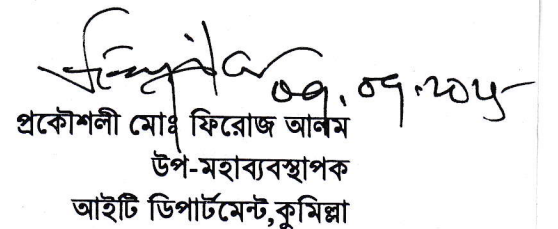 ০৭.০৭.২০২৫
প্রকৌশলী মোঃ ফিরোজ আলম
উপ-মহাব্যবস্থাপক
আইটি ডিপার্টমেন্ট,কুমিল্লা